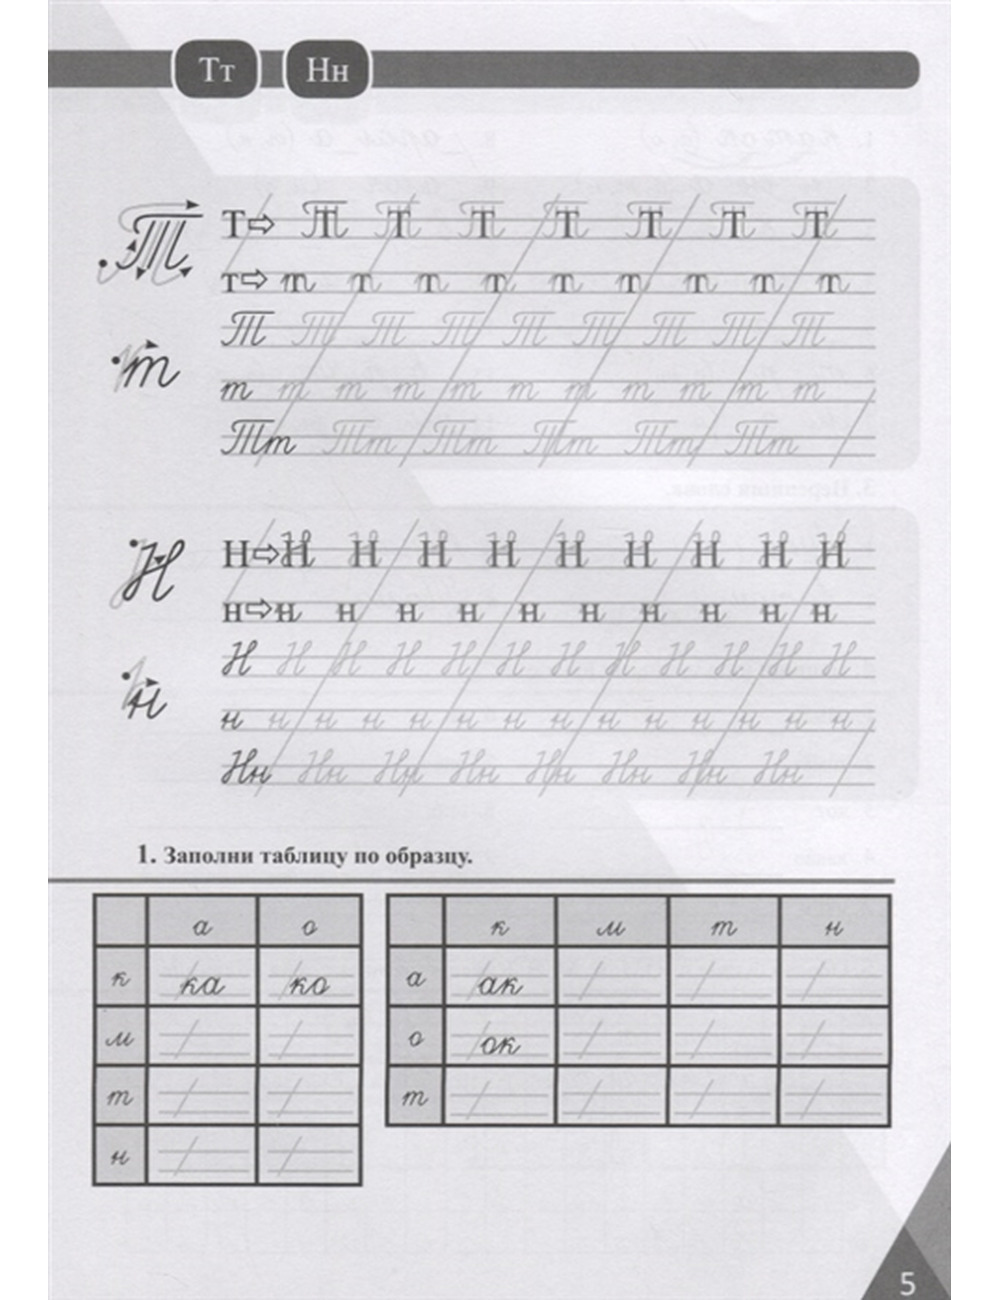 Тт Нн
Т⇨ Т Т Т Т Т Т Т
Т
т⇨ т т т т т т т т т
Т Т Т Т Т Т Т Т Т
т
т т т т т т т т т т т
Тт Тт Тт Тт Тт Тт
Н⇨ Н Н Н Н Н Н Н Н Н
Н
н⇨ н н н н н н н н н н
Н Н Н Н Н Н Н Н Н Н Н Н
н
н н н н н н н н н н н н н н
Нн Нн Нн Нн Нн Нн Нн Нн
1. Заполни таблицу по образцу.
а о
к ка ко
м
т
н
к м т н
а ак
о ок
т
5